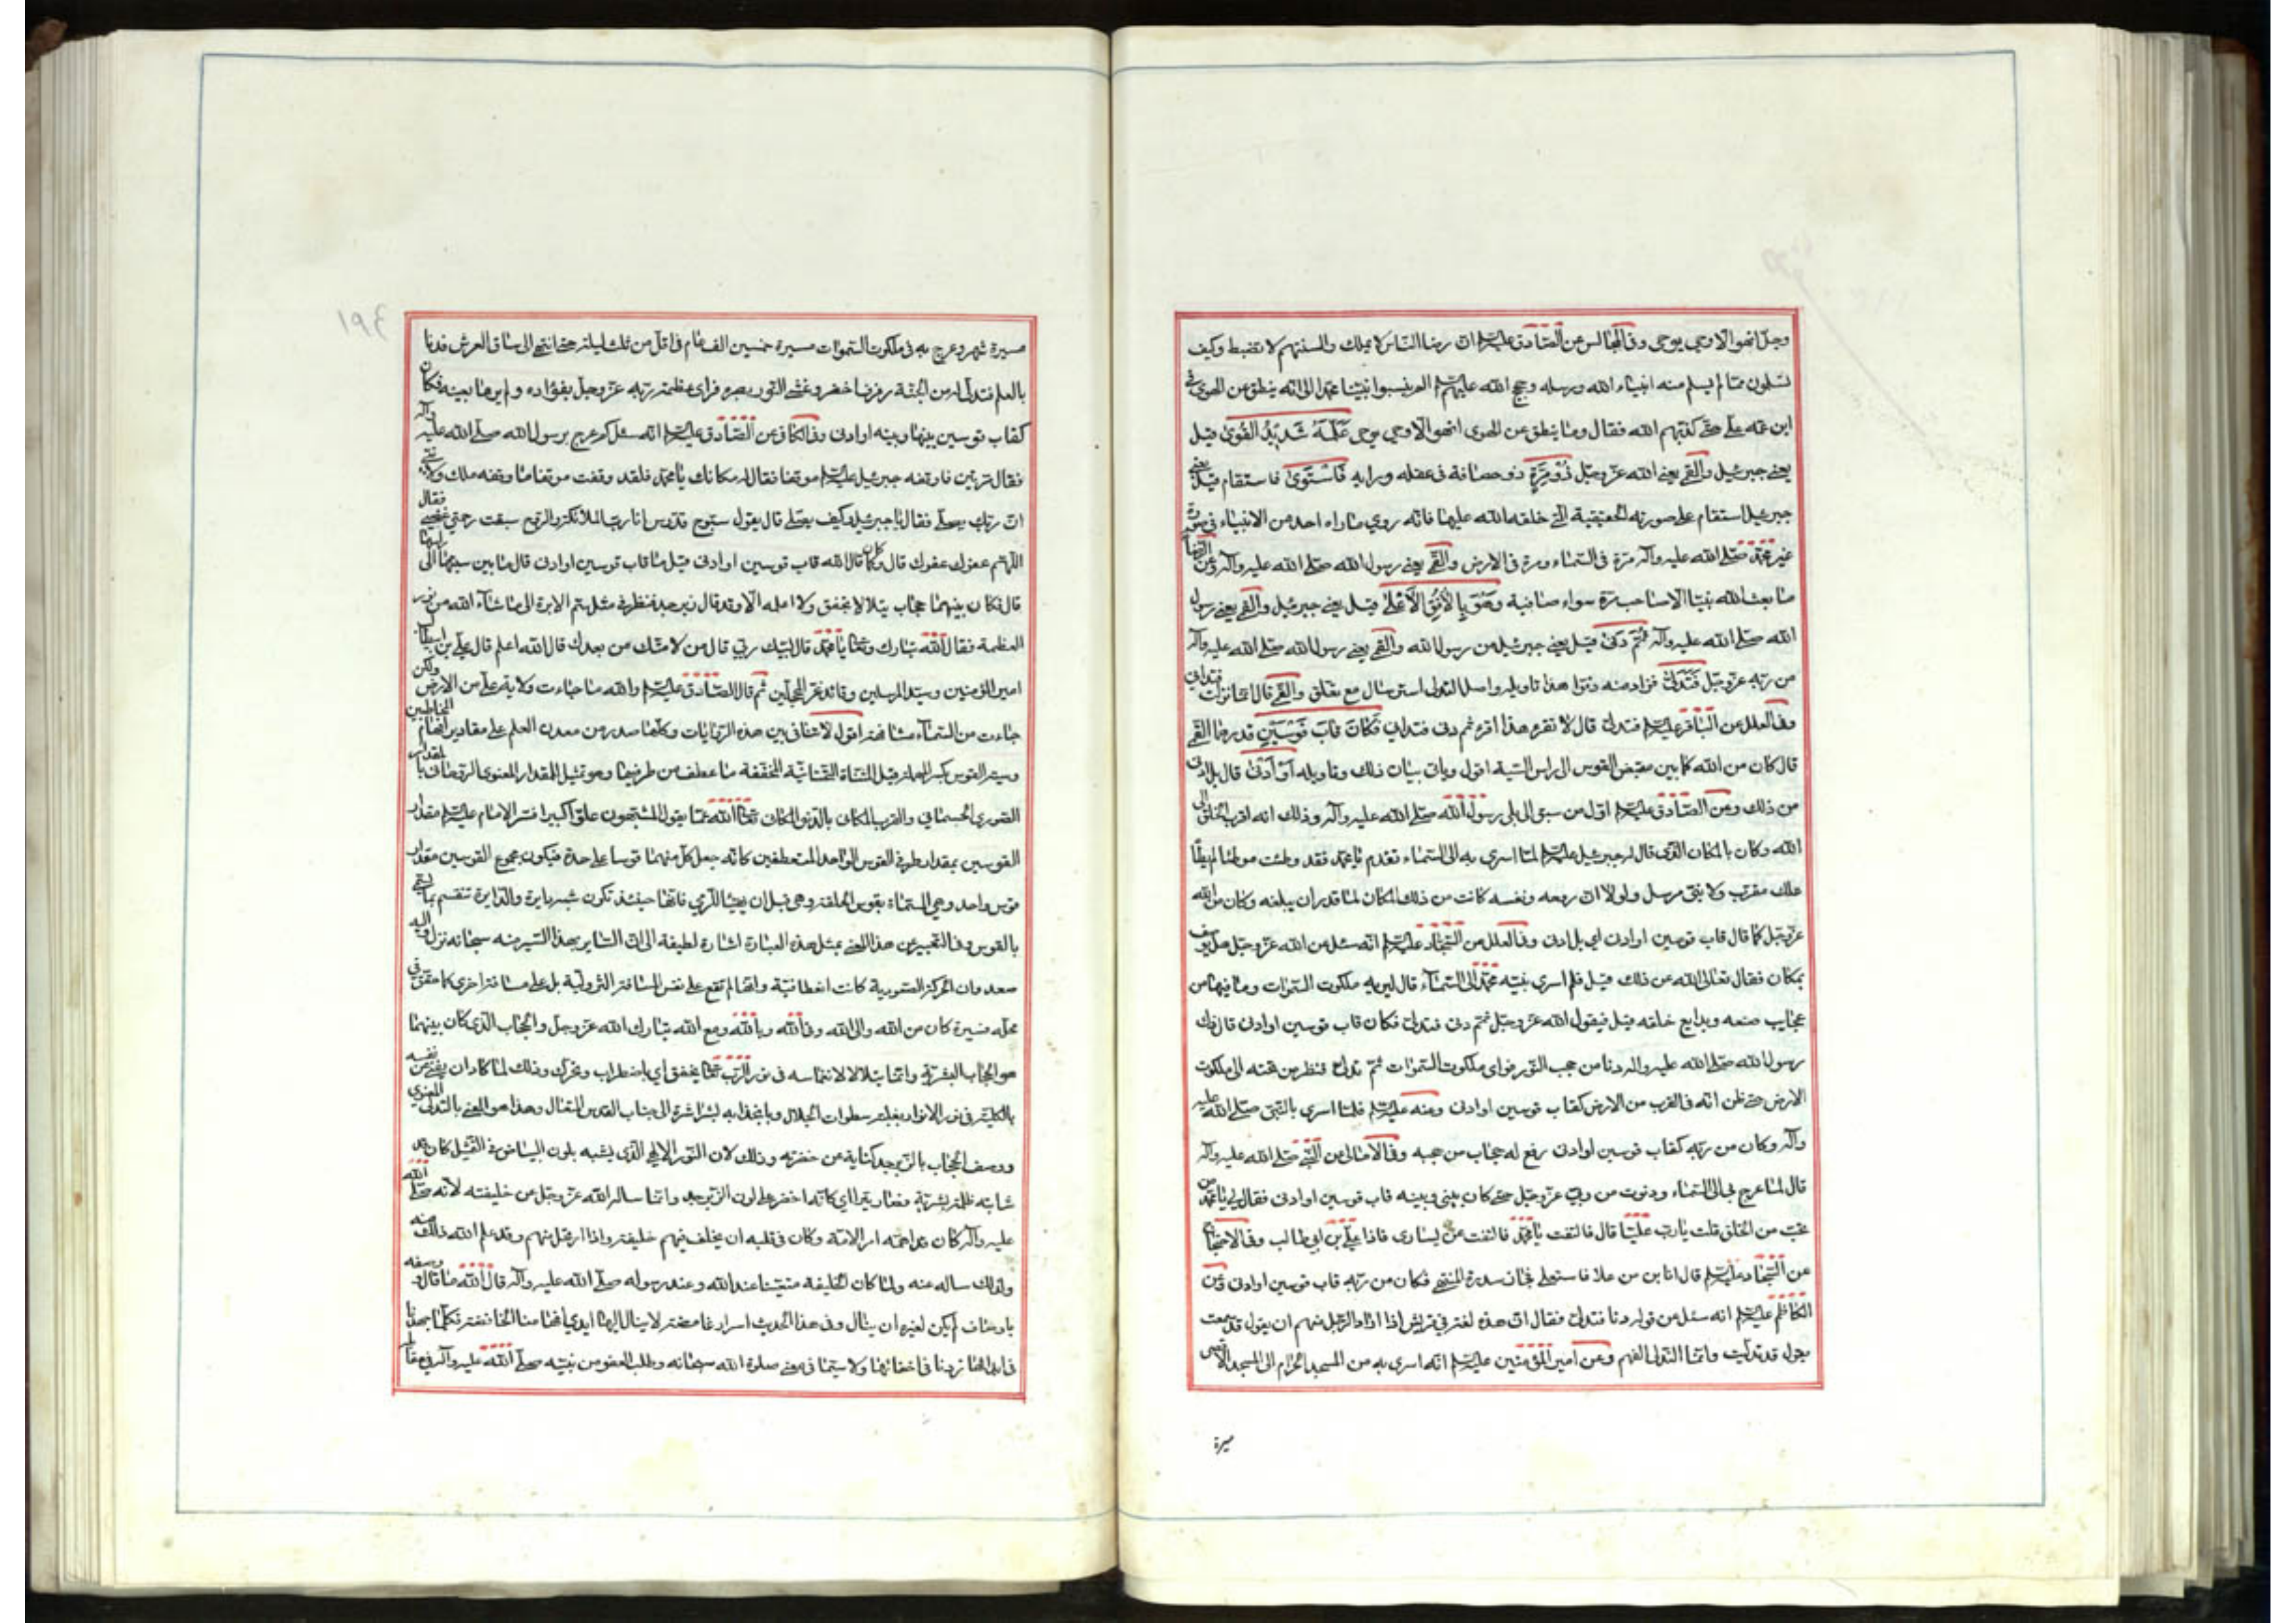 وجلّ ان هو الّا وحي يوحى وفي المجالس عن الصّادق عليه السّلم انّ رضا النّاس لا يملك والسنتهم لا تضبط وكيف
تسلمون ممّا لم يسلم منه انبياء الله ورسله وحجج الله عليهم السّلم الم ينسبوا نبيّنا محمّدا الى انّه ينطق عن الهوى في
ابن عمّه عليّ حتّى كذّبهم الله فقال وما ينطق عن الهوى ان هو الّا وحي يوحى عَلَّمَهُ شَدِيدُ القُوىٰ قيل
يعني جبرئيل والقمّي يعني الله عزّ وجلّ ذُو مِرَّةٍ ذو حصافة في عقله ورايه فَاسْتَوىٰ فاستقام قيل يعني
جبرئيل استقام على صورته الحقيقية الّتي خلقه الله عليها فانّه روي ما راه احد من الانبياء في صورته
غير محمّد صلّى الله عليه وآله مرّة في السّماء ومرة في الارض والقمّي يعني رسول الله صلّى الله عليه وآله وعن الرّضا
ما بعث الله نبيّا الا صاحب مرّة سوداء صافية وَهُوَ بِالاُفُقِ الاَعْلىٰ قيل يعني جبرئيل والقمّي يعني رسول
الله صلّى الله عليه وآله ثُمَّ دَنىٰ قيل يعني جبرئيل من رسول الله والقمّي يعني رسول الله صلّى الله عليه وآله
من ربّه عزّ وجلّ فَتَدَلّىٰ فزاد منه دنوّا هذا تاويله واصل التدلّى استرسال مع تعلّق والقمّي قال انّما نزلت فتدانى
وفي العلل عن الباقر عليه السّلم فتدلّى قال لا تقرء هذا اقرء ثم دنى فتدانى فَكَانَ قَابَ قَوْسَيْنِ قدرهما القمّي
قال كان من الله كما بين مقبض القوس الى راس السّية اقول وياتي بيان ذلك وتاويله اَوْ اَدْنىٰ قال بل ادنى
من ذلك وعن الصّادق عليه السّلم اوّل من سبق الى بلى رسول الله صلّى الله عليه وآله وذلك انه اقرب الخلق الى
الله وكان بالمكان الّذي قال له جبرئيل عليه السّلم لمّا اسري به الى السّماء تقدم يا محمّد فقد وطئت موطئا لم يطأه
ملك مقرّب ولا نبيّ مرسل ولولا انّ روحه ونفسه كانت من ذلك المكان لما قدر ان يبلغه وكان من الله
عزّ وجلّ كما قال قاب قوسين او ادنى اي بل ادنى وفي العلل عن السّجّاد عليه السّلم انّه سئل عن الله عزّ وجلّ هل يوصف
بمكان فقال تعالى الله عن ذلك قيل فلم اسري بنبيّه محمّد الى السّماء قال ليريه ملكوت السّموات وما فيها من
عجايب صنعه وبدايع خلقه قيل فيقول الله عزّ وجلّ ثم دنى فتدلّى فكان قاب قوسين او ادنى قال ذاك
رسول الله صلّى الله عليه وآله دنا من حجب النّور فراى ملكوت السّموات ثمّ تدلّى فنظر من تحته الى ملكوت
الارض حتّى ظن انّه في القرب من الارض كقاب قوسين او ادنى وعنه عليه السّلم فلمّا اسري بالنّبيّ صلّى الله عليه
وآله وكان من ربّه كقاب قوسين او ادنى رفع له حجاب من حجبه وفي الامالى عن النّبيّ صلّى الله عليه وآله
قال لمّا عرج بي الى السّماء ودنوت من ربّي عزّ وجلّ حتّى كان بيني وبينه قاب قوسين او ادنى فقال لي يا محمّد من
تحبّ من الخلق قلت يا ربّ عليّا قال فالتفت يا محمّد فالتفت عن يسارى فاذا عليّ بن ابي طالب وفي الاحتجاج
عن السّجّاد عليه السّلم قال انا بن من علا فاستعلى فجاز سدرة المنتهى فكان من ربّه قاب قوسين او ادنى وعن
الكاظم عليه السّلم انه سئل عن قوله دنا فتدلّى فقال انّ هذه لغة في قريش اذا اراد الرّجل منهم ان يقول قد سمعت
يقول قد تدلّيت وانّما التدلّى الفهم وعن امير المؤمنين عليه السّلم انّه اسري به من المسجد الحرام الى المسجد الاقصى
مسيرة
١٩٤
مسيرة شهر وعرج به في ملكوت السّموات مسيرة خمسين الف عام في اقلّ من ثلث ليلة حتّى انتهى الى ساق العرش فدنا
بالعلم فتدلّى له من الجنّة رفرف اخضر وغشى النّور بصره فراى عظمة ربّه عزّ وجلّ بفؤاده ولم يرها بعينه فكان
كقاب قوسين بينها وبينه او ادنى وفي الكافي عن الصّادق عليه السّلم انّه سئل كم عرج برسول الله صلّى الله عليه وآله
فقال مرّتين فاوقفه جبرئيل عليه السّلم موقفا فقال له مكانك يا محمّد فلقد وقفت موقفا ما وقفه ملك ولا نبيّ
انّ ربّك يصلّي فقال يا جبرئيل وكيف يصلّي قال يقول سبّوح قدّوس انا ربّ الملائكة والرّوح سبقت رحمتي غضبي فقال
اللّهمّ عفوك عفوك قال وكان كما قال الله قاب قوسين او ادنى قيل ما قاب قوسين او ادنى قال ما بين سيتها الى راسها
قال فكان بينهما حجاب يتلالا يخفق ولا اعلمه الّا وقد قال زبرجد فنظر في مثل سمّ الابرة الى ما شآء الله من نور
العظمة فقال الله تبارك وتعالى يا محمّد قال لبّيك ربّي قال من لامّتك من بعدك قال الله اعلم قال عليّ بن ابيطالب
امير المؤمنين وسيّد المرسلين وقائد غرّ المحجّلين ثم قال الصّادق عليه السّلم والله ما جاءت ولاية عليّ من الارض ولكن
جاءت من السّماء مشافهة اقول لا تنافى بين هذه الرّوايات وكلّها صدر من معدن العلم على مقادير افهام المخاطبين
وسية القوس بكسر المهملة قبل المثنّاة التّحتانيّة المخفّفة ما عطف من طرفيها وهو تمثيل للمقدار المعنوي الرّوحاني بالمقدار
الصّوري الجسماني والقرب المكانى بالدّنوّ المكاني تعالى الله عمّا يقول المشبّهون علوّا كبيرا فسّر الامام عليه السّلم مقدار
القوسين بمقدار طرفي القوس الواحد المنعطفين كانّه جعل كلّا منهما قوسا على حدة فيكون مجموع القوسين مقدار
قوس واحد وهي المسمّاة بقوس الحلقة وهي قبل ان يهيّأ للرّمي فانّها حينئذ تكون شبه دايرة والدّايرة تنقسم بما يسمّى
بالقوس وفي التعبير عن هذا المعنى بمثل هذه العبارة اشارة لطيفة الى انّ السّاير بهذا السّير منه سبحانه نزل واليه
صعد وان الحركة الصعودية كانت انعطافيّة وانّها لم تقع على نفس المسافة النّزوليّة بل على مسافة اخرى كما حقّق في
محلّه فسيره كان من الله والى الله وفي الله وبالله ومع الله تبارك الله عزّ وجلّ والحجاب الّذي كان بينهما
هو الحجاب البشريّة وانّما يتلالا لانغماسه في نور الرّبّ تعالى يخفق اي باضطراب وتحرّك وذلك لما كاد ان يفنى عن نفسه
بالكليّة في نور الانوار بغلبة سطوات الجلال وبانجذابه بشراشره الى جناب القدس المتعال وهذا هو المعني بالتدلّى المعنوي
ووصف الحجاب بالزّبرجد كناية عن خضرته وذلك لان النّور الالهي الّذي يشبه بلون البياض في التّمثيل كان قد
شابته ظلمة بشريّة فصار يتراءى كانّه اخضر على لون الزّبرجد وانّما ساله الله عزّ وجلّ عن خليفته لانّه صلّى الله
عليه وآله كان قد اهمّه امر الامّة وكان في قلبه ان يخلف فيهم خليفة اذا ارتحل عنهم وقد علم الله ذلك منه
ولذلك ساله عنه ولمّا كان الخليفة متعيّنا عند الله وعند رسوله صلّى الله عليه وآله قال الله ما قال ووصفه
باوصاف لم يكن لغيره ان ينال وفي هذا الحديث اسرار غامضة لا ينال اليها ايدي افهامنا الخافضة فكلّما جهدنا
في ابدائها زدنا في اخفائها ولا سيّما في معنى صلوة الله سبحانه وطلب العفو من نبيّه صلّى الله عليه وآله في مقابله